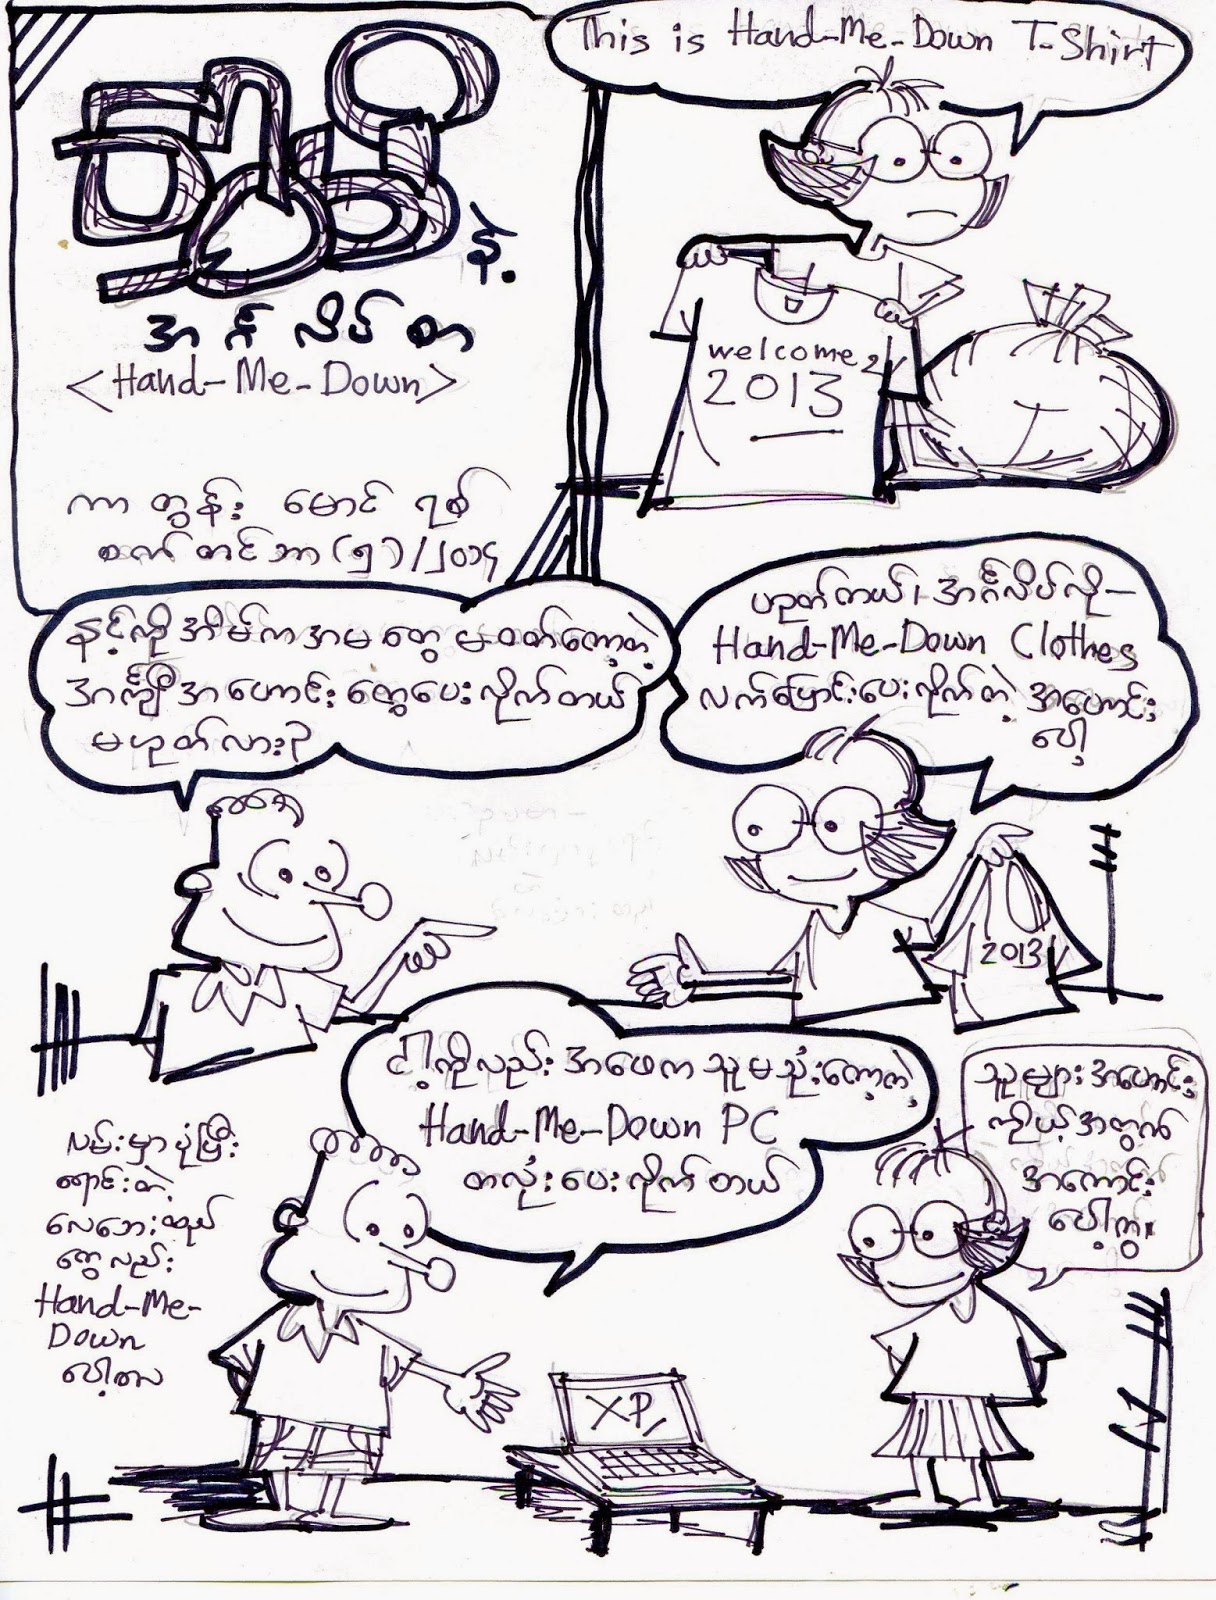 ကာတွန်းနဲ့
အင်္ဂလိပ်စာ
<Hand-Me-Down>
ကာတွန်း မောင်ရစ်
စက်တင်ဘာ (၅) / ၂၀၁၄
This is Hand-Me-Down T-Shirt
welcome 2
2013
နင့်ကို အိမ်က အမတွေ မဝတ်တော့တဲ့
အင်္ကျီ အဟောင်းတွေပေးလိုက်တယ်
မဟုတ်လား?
ဟုတ်တယ်၊ အင်္ဂလိပ်လို-
Hand-Me-Down Clothes
လက်ပြောင်းပေးလိုက်တဲ့ အဟောင်း
ပေါ့
2013
ငါ့ကိုလည်း အဖေက သူမသုံးတော့တဲ့
Hand-Me-Down PC
တလုံးပေးလိုက်တယ်
သူများ အဟောင်း
ကိုယ့်အတွက်
အကောင်း
ပေါ့ကွ
လမ်းမှာပုံပြီး
ရောင်းတဲ့
လေဘေးထည်
တွေလည်း
Hand-Me-
Down
ပေါ့လေ
XP